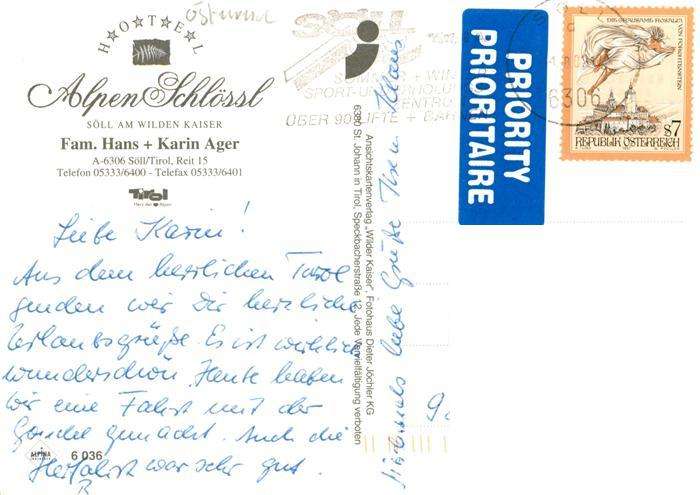 östurie
HOTEL
Alpen Schlössl
SÖLL AM WILDEN KAISER
Fam. Hans + Karin Ager
A-6306 Söll/Tirol, Reit 15
Telefon 05333/6400 - Telefax 05333/6401
Tirol
Herz der Alpen
Liebe Karin!
Aus dem herrlichen Tirol
senden wir Dir herzliche
Urlaubsgrüße. Es ist wirklich
wunderschön. Heute haben
wir eine Fahrt mit der
Gondel gemacht. Auch die
Herfahrt war sehr gut.
ALPINA
6 036
SÖLL
SOMMER + WIN
SPORT- U
ÜBER 90 LIFTE + BA
Ansichtskartenverlag „Wilder Kaiser", Fotohaus Dieter Jöchler KG
6380 St. Johann in Tirol, Speckbacherstraße 12, Jede Vervielfältigung verboten
liebe Grüße
Klaus
PRIORITY
PRIORITAIRE
6306
DIE GRAUSAME ROSALIA
VON FORCHTENSTEIN
s7
REPUBLIK ÖSTERREICH